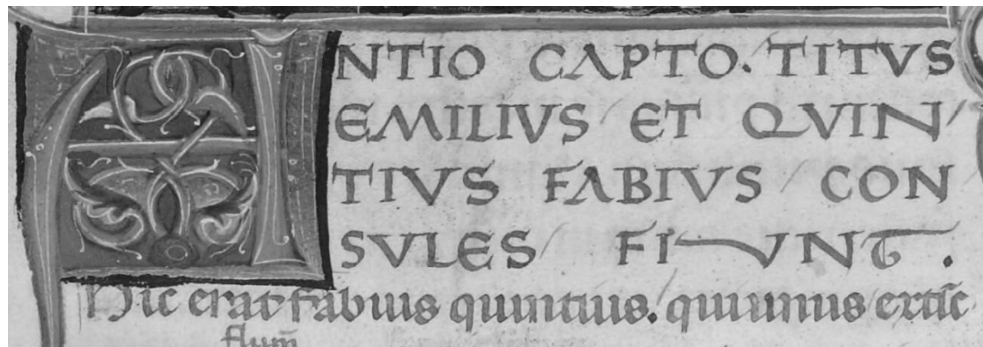 ANTIO CAPTO. TITVS
EMILIVS / ET QVIN/
TIVS FABIVS / CON
SVLES / FIVNT.
Hic erat fabius quintius. / qui unus / ex
flum̄